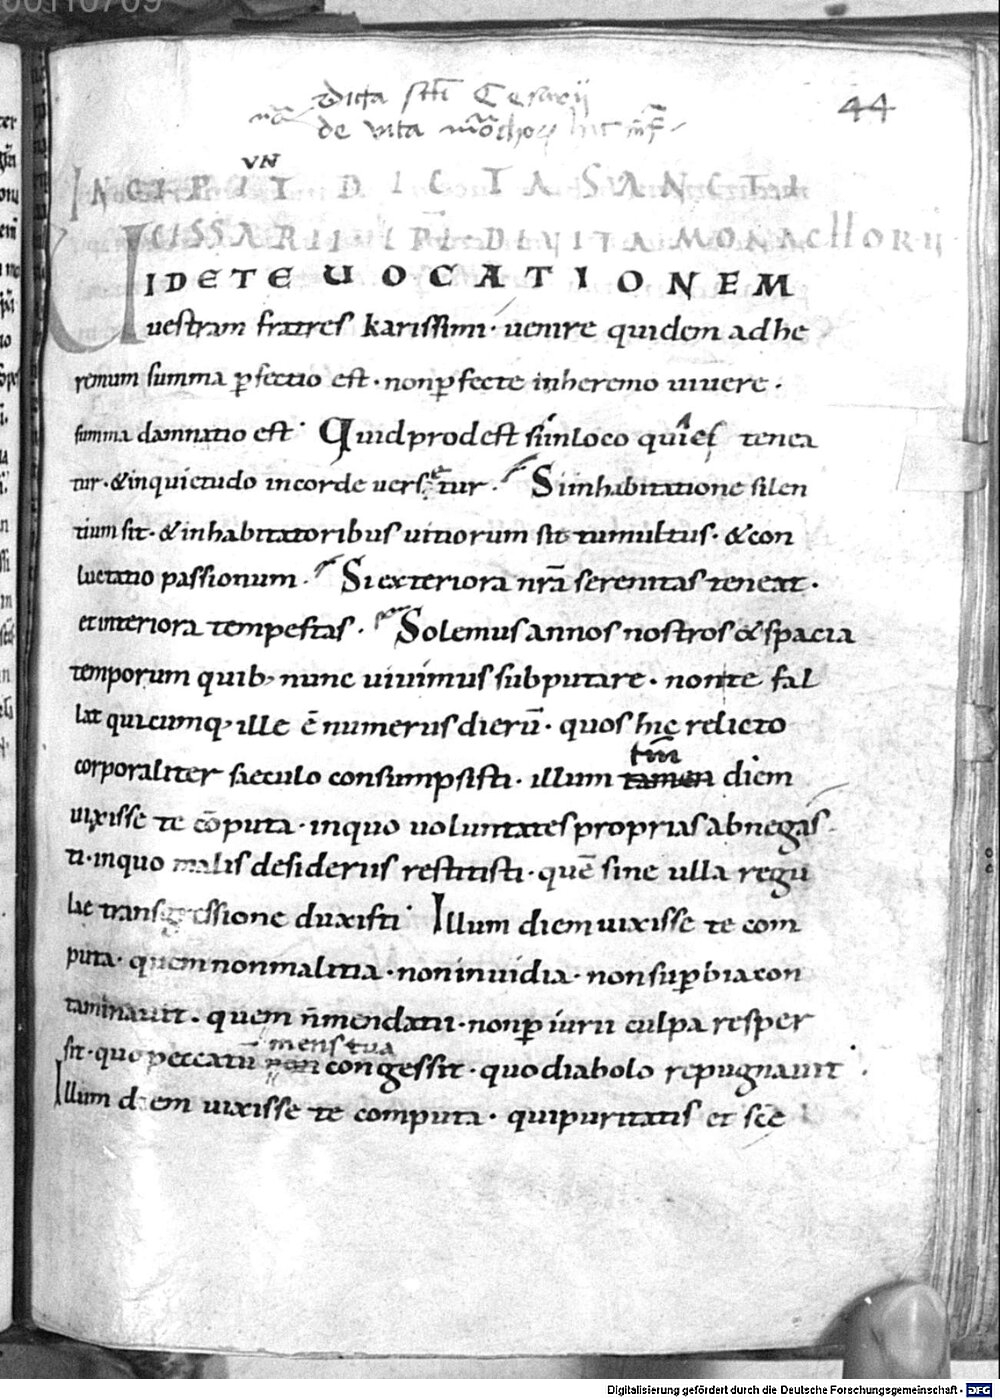 Dicta scti Cesarij
de vita mōchoꝝ hic
44
VN
INCIPIT DICTA SANCTI
CESSARII EPI· DE VITA MONACHORŪ
VIDETE VOCATIONEM
uestram fratres karissimi· uenire quidem ad he
remum summa ꝑfectio est· non ꝑfecte in heremo uiuere·
summa damnatio est· Quid prodest si in loco quies tenea
tur· & inquietudo in corde uersetur· Si in habitatione silen
tium sit· & in habitatoribus uitiorum sit tumultus· & con
luctatio passionum· Si exteriora nrā serenitas teneat·
et interiora tempestas· Solemus annos nostros & spacia
temporum quib; nunc uiuimus subputare· non te fal
lat quicumq; ille ē numerus dierū· quos hic relicto
tm̄
corporaliter saeculo consumpsisti· illum tamen diem
uixisse te cōputa· in quo uoluntates proprias abnegas
ti· in quo malis desideriis restitisti· quē sine ulla regu
lae transgressione duxisti· Illum diem uixisse te com
puta· quem non malitia· non inuidia· non suꝑbia con
taminauit· quem n̄ mendatii· non ꝑiurii culpa resper
mens tua
sit· quo peccatū non congessit· quo diabolo repugnauit·
Illum diem uixisse te computa· qui puritatis et scē
Digitalisierung gefördert durch die Deutsche Forschungsgemeinschaft - DFG